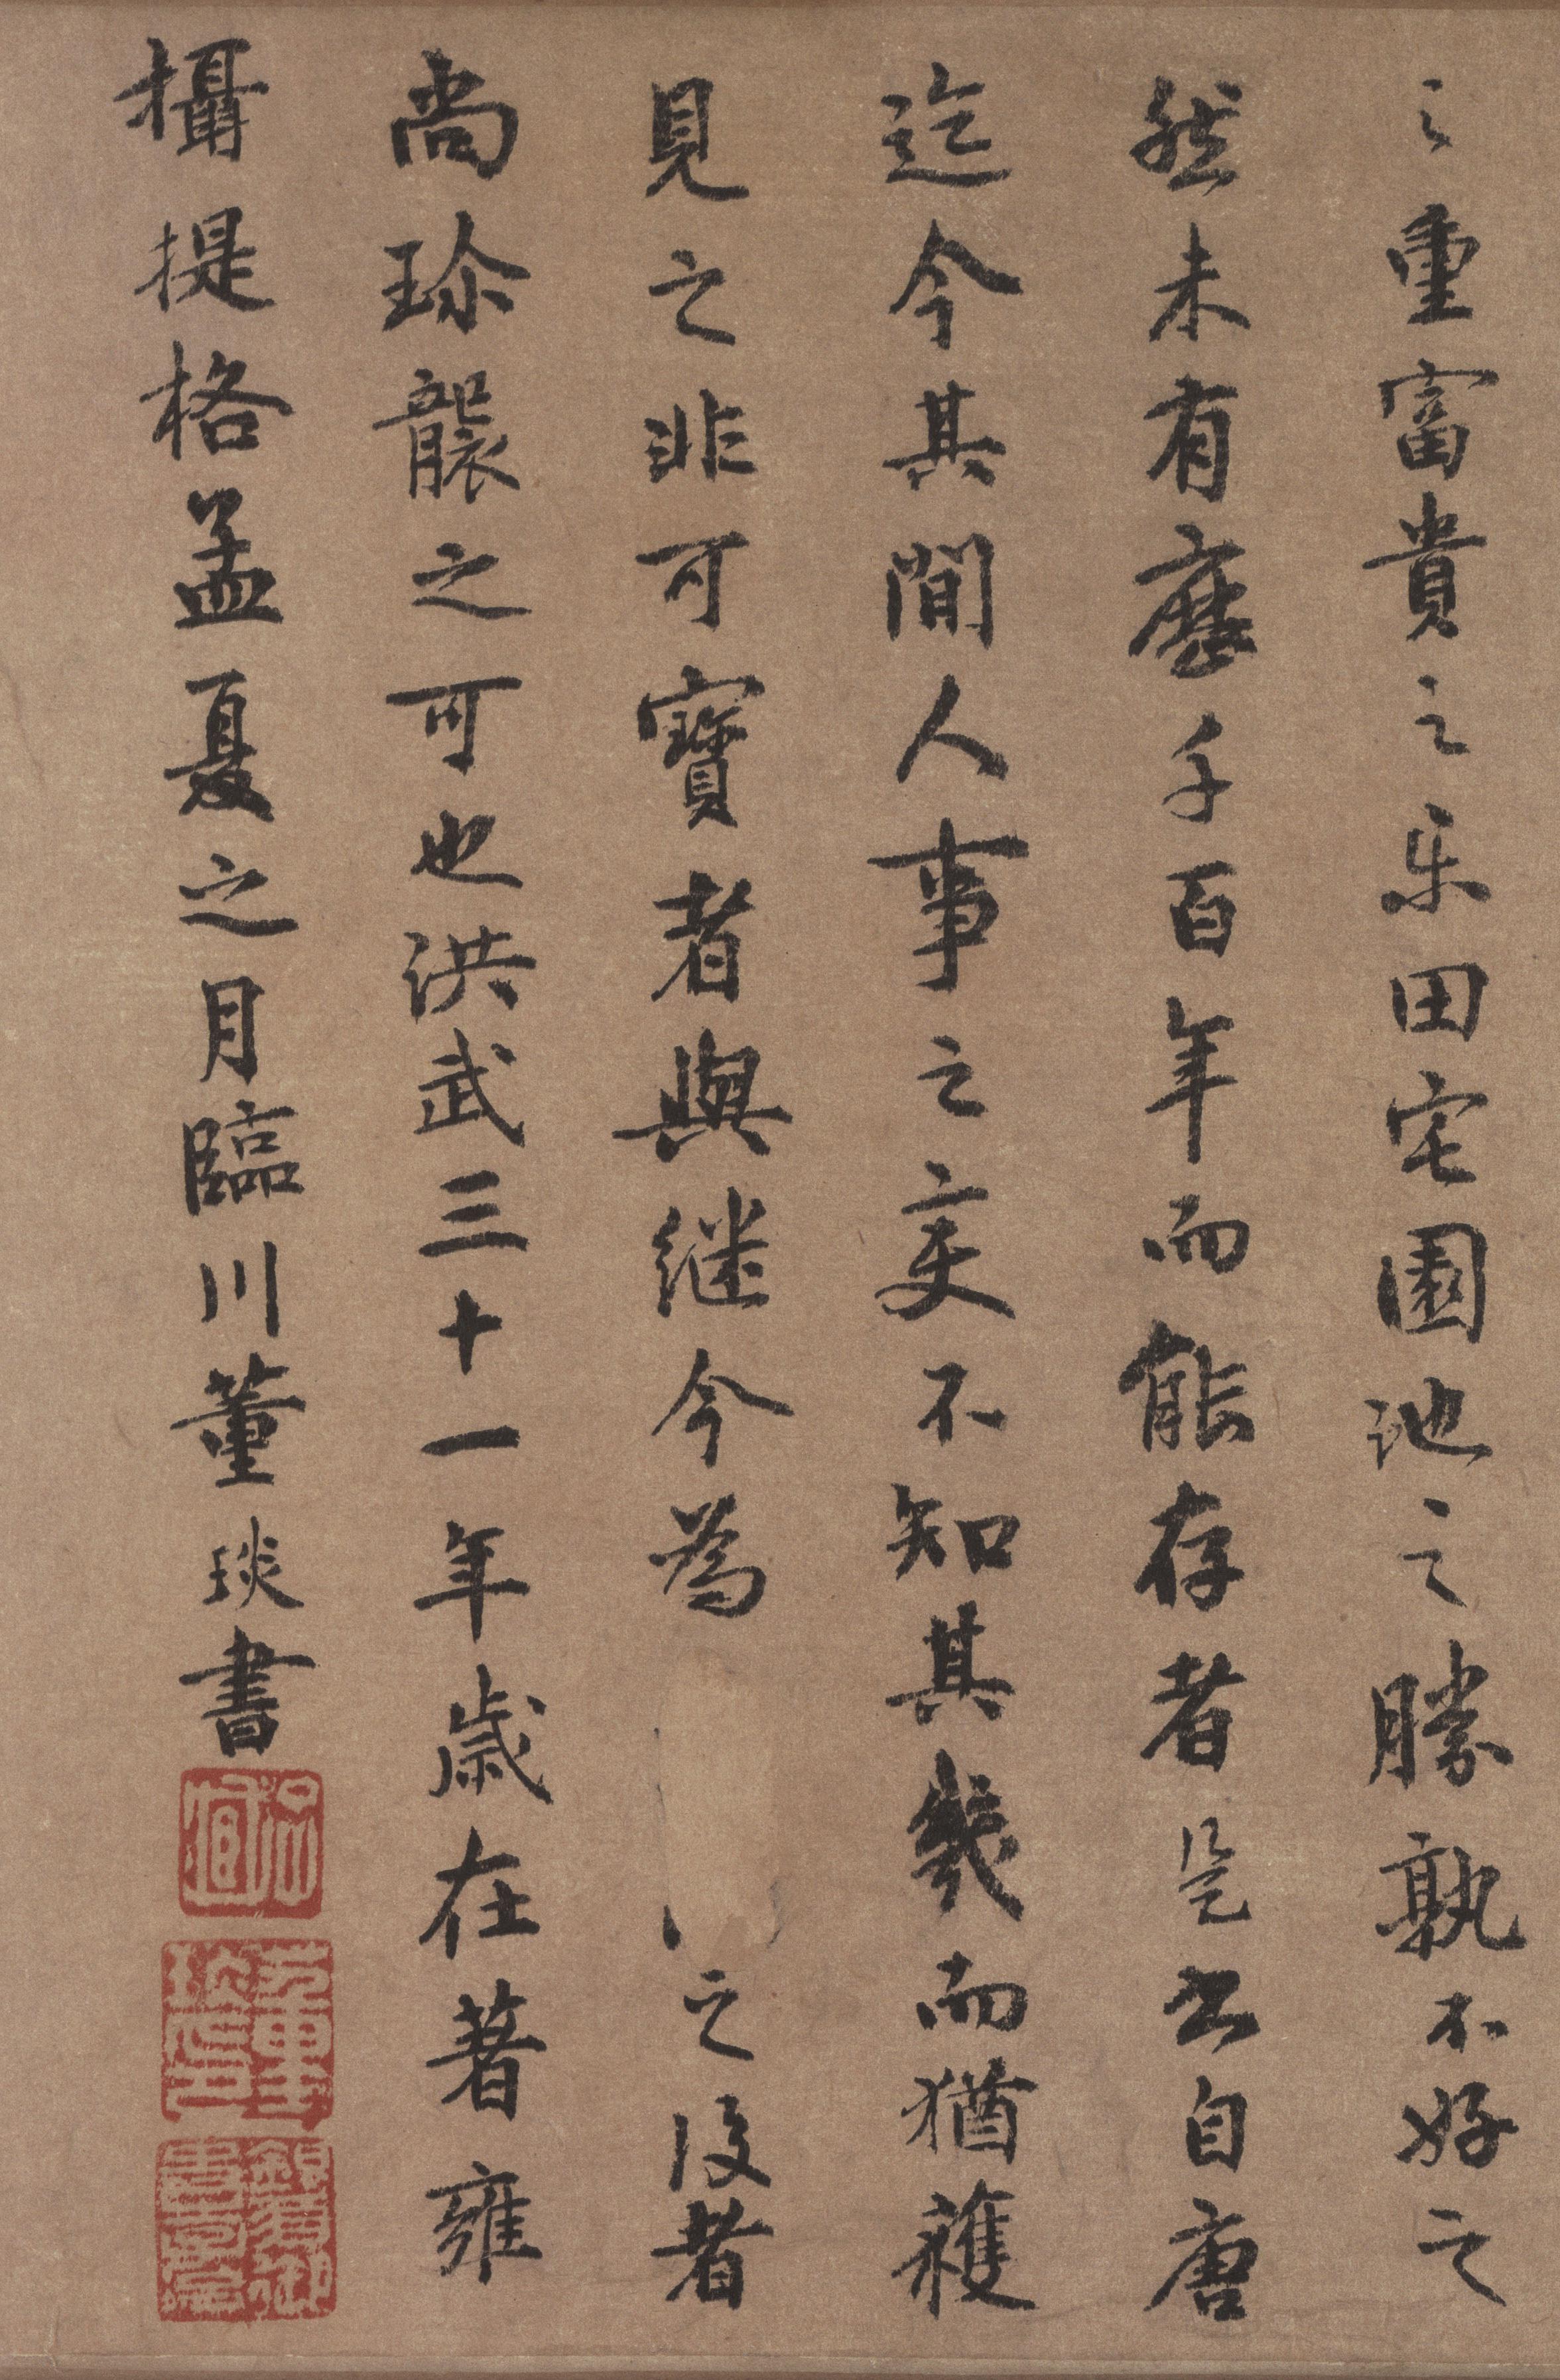 之重富貴之乐田宅園池之勝孰不好之
然未有歷千百年而能存者是書自唐
迄今其間人事之变不知其幾而猶獲
見之非可寶者與继今為之後者
尚珍襲之可也洪武三十一年歲在著雍
攝提格孟夏之月臨川董琰書